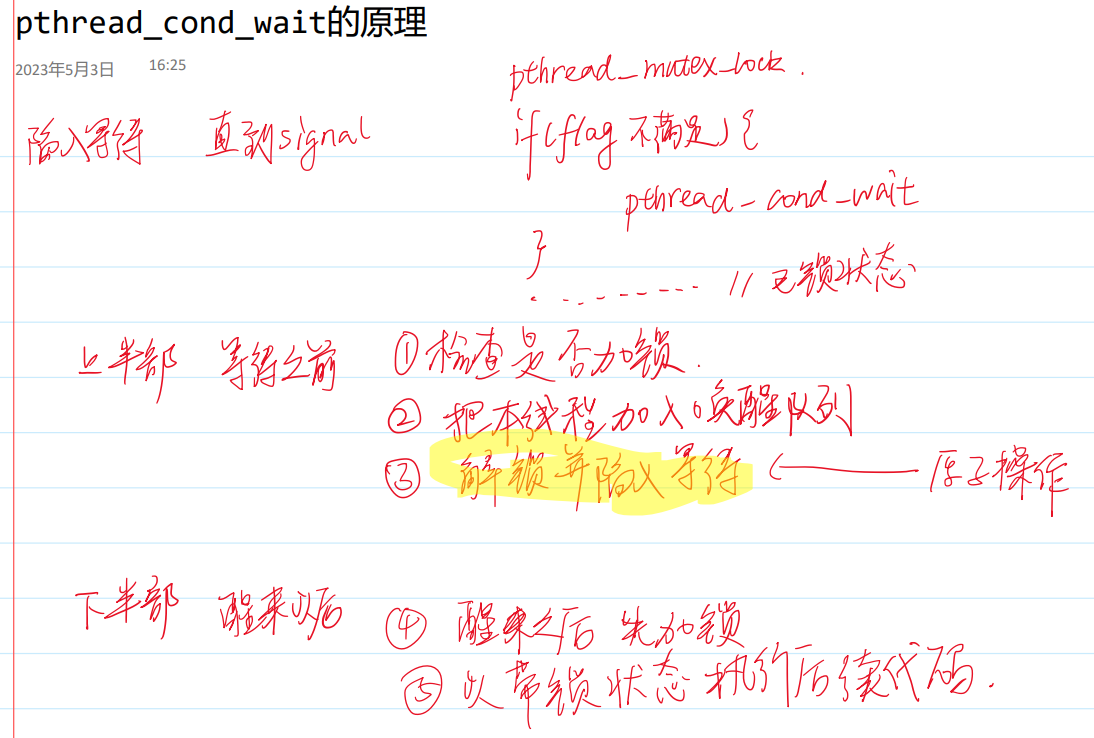 pthread_cond_wait的原理
2023年5月3日 16:25
pthread_mutex_lock.
陷入等待 直到signal
if(flag 不满足){
pthread_cond_wait
}
......... // 已锁状态
上半部 等待之前 ①检查是否加锁.
② 把本线程加入唤醒队列
③ 解锁并陷入等待 ← 原子操作
下半部 醒来以后 ④ 醒来之后 先加锁
⑤ 以带锁状态执行后续代码.